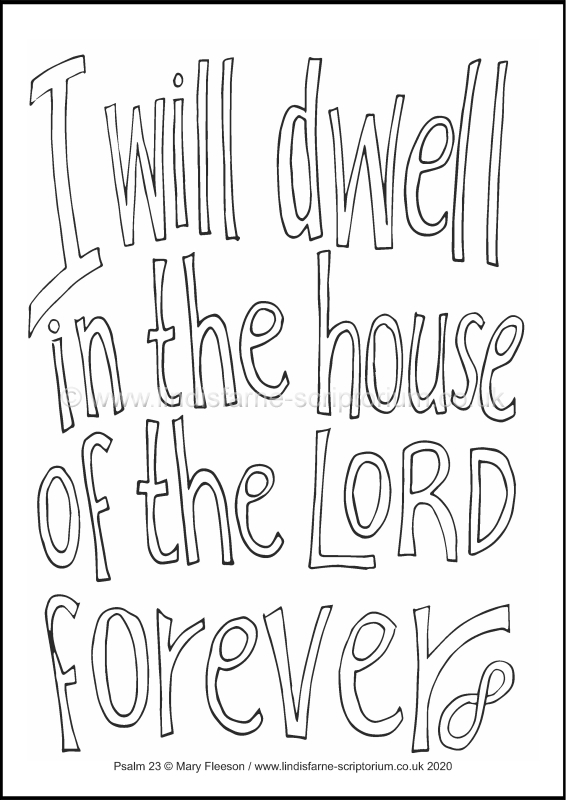 I will dwell
in the house
© www.lindisfarne-scriptorium.co.uk
of the LORD
forever
Psalm 23 © Mary Fleeson / www.lindisfarne-scriptorium.co.uk 2020